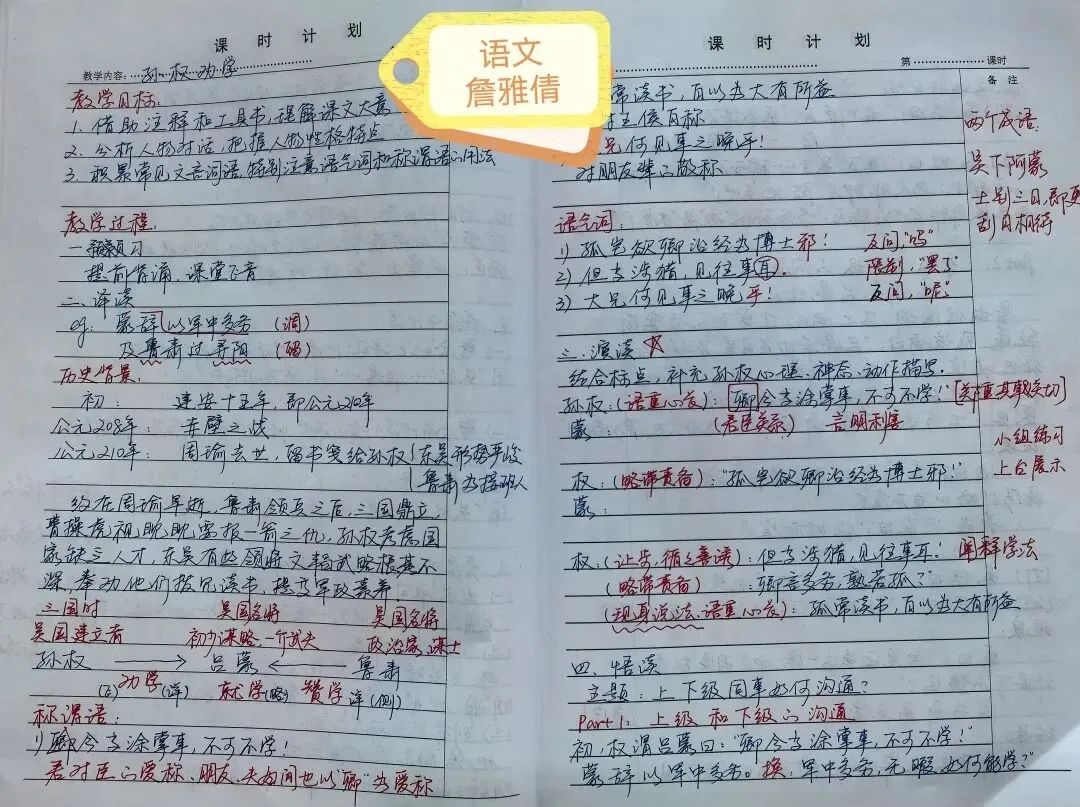 课时计划
教学内容：孙权劝学
教学目标：
1. 借助注释和工具书，理解课文大意
2. 分析人物对话，把握人物性格特点
3. 积累常见文言词语，特别注意语气词和称谓语的用法
教学过程：
一 预习
提前背诵，课堂飞音
二、译读
eg："蒙辞以军中多务 （调）
及鲁肃过寻阳 （留）
历史背景：
初： 建安十五年，即公元210年
公元208年： 赤壁之战
公元210年： 周瑜去世，留书笺给孙权
东吴形势严峻
鲁肃为接班人
约在周瑜早逝，鲁肃领兵之后，三国鼎立，
曹操虎视眈眈要报一箭之仇，孙权考虑国
家缺乏人才，东吴有些领将文韬武略根基不
深，奉劝他们拨冗读书，提高军政素养。
三国时 吴国名将 吴国名将
吴国建立者 初少谋略，一介武夫 政治家 谋士
孙权 → 吕蒙 ← 鲁肃
劝学（详） 就学（略） 赞学 详（侧）
称谓语：
1) 卿今当涂掌事，不可不学！
君对臣的爱称、朋友、夫妇间也以"卿"为爱称
语文
詹雅倩
课时计划
第 课时
备注
常读书，自以为大有所益
对王侯自称
兄何见事之晚乎！
对朋友辈的敬称
语气词：
1) 孤岂欲卿治经为博士邪！ 反问，"吗"
2) 但当涉猎，见往事耳。 限制，"罢了"
3) 大兄何见事之晚乎！ 反问，"呢"
三、演读 ☆
结合标点，补充孙权心理、神态、动作描写。
孙权：（语重心长）："卿今当涂掌事，不可不学！"
蒙： （君臣关系） 言明利害
权：（略带责备）："孤岂欲卿治经为博士邪！"
蒙：
权：（让步、循之善诱）：但当涉猎，见往事耳！ 阐释学法
（略带责备） ：卿言多务，孰若孤？"
（现身说法、语重心长）：孤常读书，自以为大有所益
四、悟读
主题：上下级同事如何沟通？
Part 1. 上级和下级的沟通
初，权谓吕蒙曰："卿今当涂掌事，不可不学！"
蒙辞以军中多务。换：军中多务，无暇如何能学？"
两个成语：
吴下阿蒙
士别三日，即更
刮目相待
小组练习
上台展示